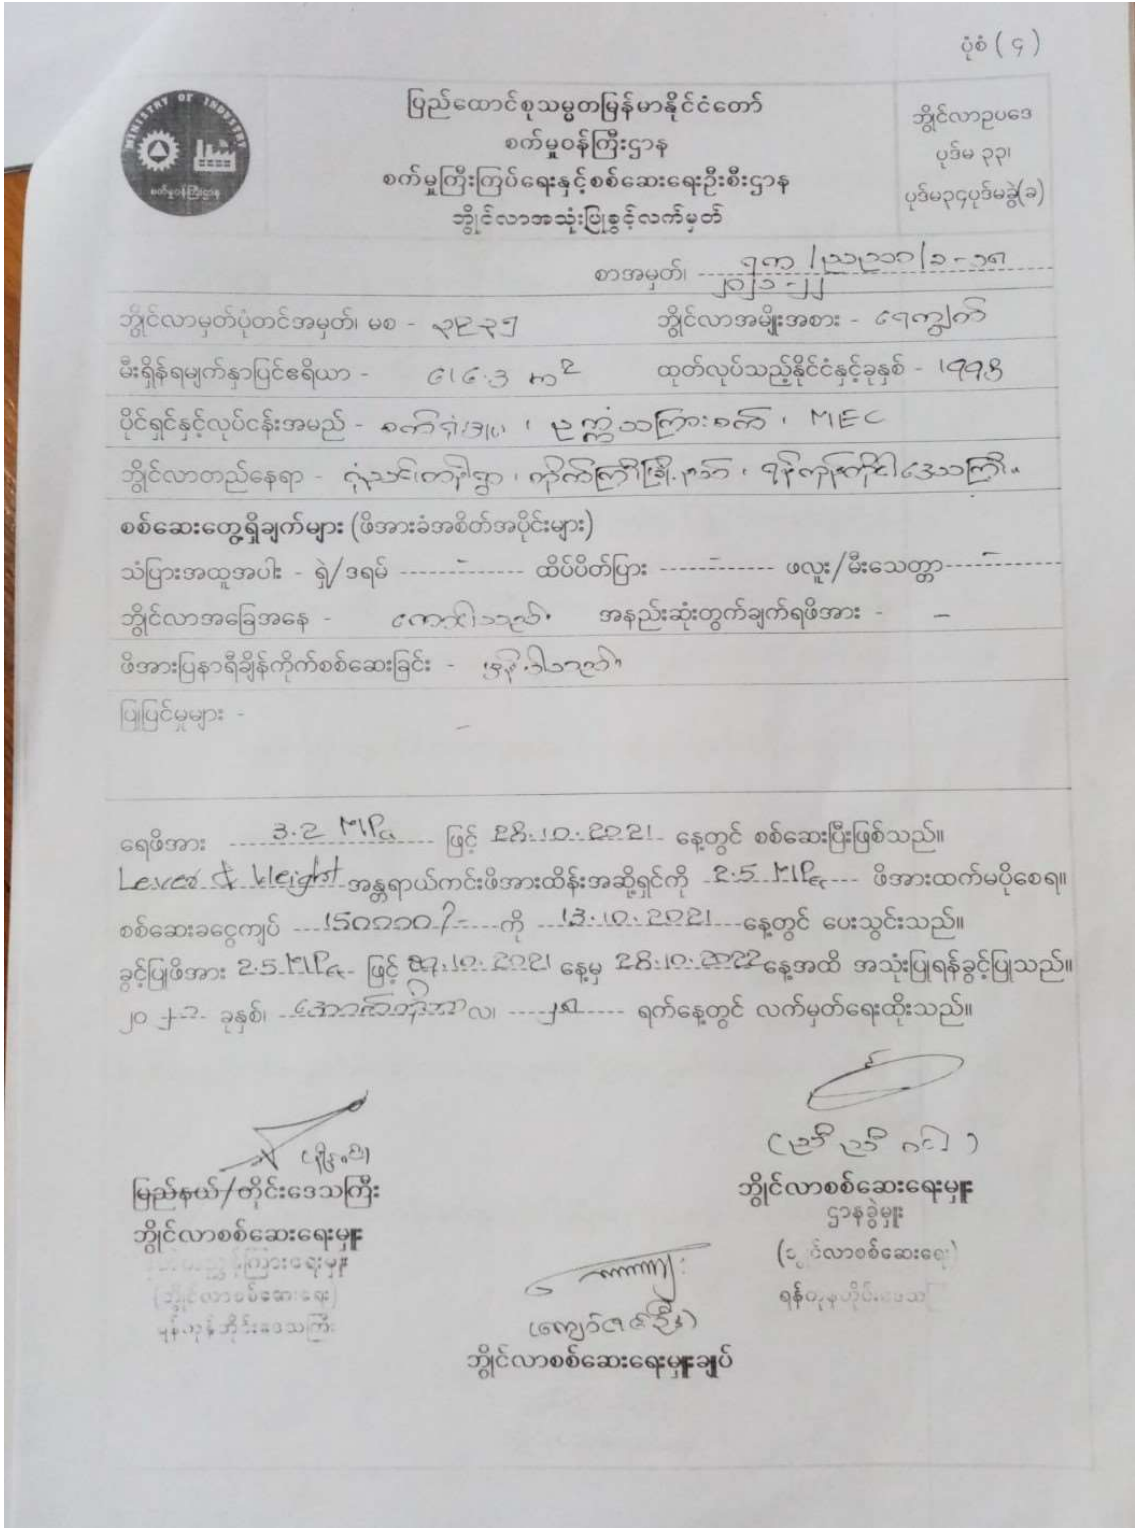 ပုံစံ ( ၄ )
MINISTRY OF INDUSTRY
စက်မှုဝန်ကြီးဌာန
ပြည်ထောင်စုသမ္မတမြန်မာနိုင်ငံတော်
စက်မှုဝန်ကြီးဌာန
စက်မှုကြီးကြပ်ရေးနှင့်စစ်ဆေးရေးဦးစီးဌာန
ဘွိုင်လာအသုံးပြုခွင့်လက်မှတ်
ဘွိုင်လာဥပဒေ
ပုဒ်မ ၃၃၊
ပုဒ်မ၃၄ပုဒ်မခွဲ(ခ)
စာအမှတ်၊
၂၀၂၁-၂၂
ဘွိုင်လာမှတ်ပုံတင်အမှတ်၊ မစ - ၃၉၃၅ ဘွိုင်လာအမျိုးအစား -
မီးရှိန်ရမျက်နှာပြင်ဧရိယာ - ၆၁၆.၃ m² ထုတ်လုပ်သည့်နိုင်ငံနှင့်ခုနှစ် - 1998
ပိုင်ရှင်နှင့်လုပ်ငန်းအမည် - ဥက္ကံသကြားစက် ၊ MEC
ဘွိုင်လာတည်နေရာ - ရန်ကုန်တိုင်းဒေသကြီး။
စစ်ဆေးတွေ့ရှိချက်များ (ဖိအားခံအစိတ်အပိုင်းများ)
သံပြားအထူအပါး - ရှဲ/ဒရမ် - ထိပ်ပိတ်ပြား - ဖလူး/မီးသေတ္တာ -
ဘွိုင်လာအခြေအနေ - ကောင်းပါသည်။ အနည်းဆုံးတွက်ချက်ရဖိအား - -
ဖိအားပြနာရီချိန်ကိုက်စစ်ဆေးခြင်း - မှန်ပါသည်။
ပြုပြင်မှုများ - -
ရေဖိအား 3.2 MPa ဖြင့် 28.10.2021 နေ့တွင် စစ်ဆေးပြီးဖြစ်သည်။
Lever & Weight အန္တရာယ်ကင်းဖိအားထိန်းအဆို့ရှင်ကို 2.5 MPa ဖိအားထက်မပိုစေရ။
စစ်ဆေးခငွေကျပ် 150000/- ကို 13.10.2021 နေ့တွင် ပေးသွင်းသည်။
ခွင့်ပြုဖိအား 2.5 MPa ဖြင့် 29.10.2021 နေ့မှ 28.10.2022 နေ့အထိ အသုံးပြုရန်ခွင့်ပြုသည်။
၂၀ ခုနှစ်၊ အောက်တိုဘာ လ၊ ရက်နေ့တွင် လက်မှတ်ရေးထိုးသည်။
ပြည်နယ်/တိုင်းဒေသကြီး
ဘွိုင်လာစစ်ဆေးရေးမှူး
(ဘွိုင်လာစစ်ဆေးရေး)
ရန်ကုန်တိုင်းဒေသကြီး
ဘွိုင်လာစစ်ဆေးရေးမှူး
ဌာနခွဲမှူး
(ဘွိုင်လာစစ်ဆေးရေး)
ရန်ကုန်တိုင်းဒေသ
ဘွိုင်လာစစ်ဆေးရေးမှူးချုပ်